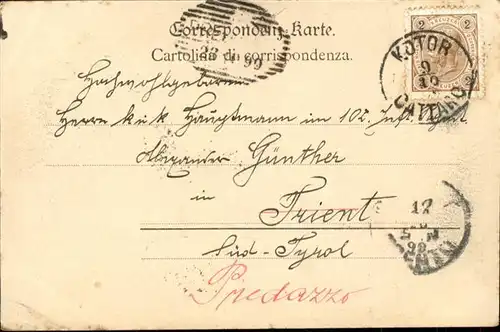 Correspondenz-Karte.
Cartolina di corrispondenza.
23 99
2 2
KOTOR
9
10
CATTARO
Hochwohlgeboren
Herrn k.u.k. Hauptmann im 102. Inft. Rgmt
Alexander Günther
in
Trient
Süd-Tyrol
Predazzo
12